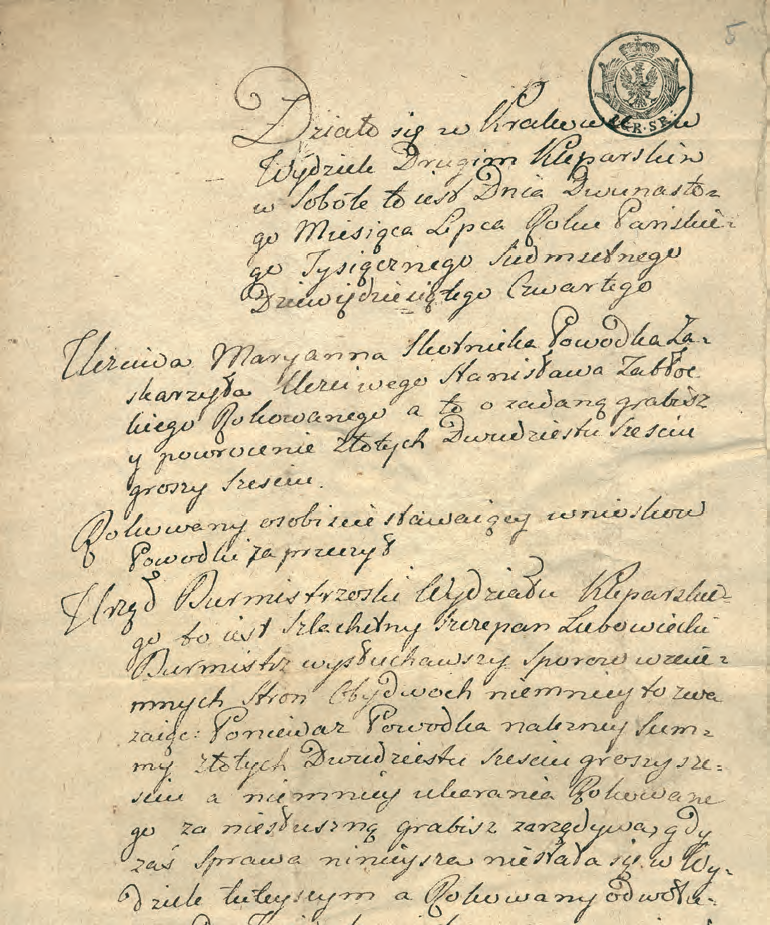 5
Działo się w Krakowie w
Wydziele Drugim Kleparskim
w Sobotę to iest Dnia Dwunaste-
go Miesiąca Lipca Roku Pańskie-
go Tysiącznego Siedmsetnego
Dziewiędziesiątego Czwartego
Uczciwa Maryanna Skotnicka Powodka Za-
skarzyła Uczciwego Stanisława Zabłoc
kiego Pozwanego a to o zadaną grabisz
y powrocenie Złotych Dwudziestu Sześciu
groszy Sześciu.
Pozwany osobiscie stawaiący wnioskow
Powodki zaprzeczył
Urząd Burmistrzoski Wydziału Kleparskie-
go to iest Szlachetny Szczepan Lubowiecki
Burmistrz wysłuchawszy Sporow wzaie-
mnych Stron Obydwoch niemniey to zwa
zaiąc: Poniewaz Powodka nalezney Sum-
my Złotych Dwudziestu Sześciu groszy sze-
sciu a niemniey ukarania Pozwane
go za niesłuszną grabisz gdy
zaś Sprawa ninieysza niestała się w Wy-
dziele tuteyszym a Pozwany odwoła-